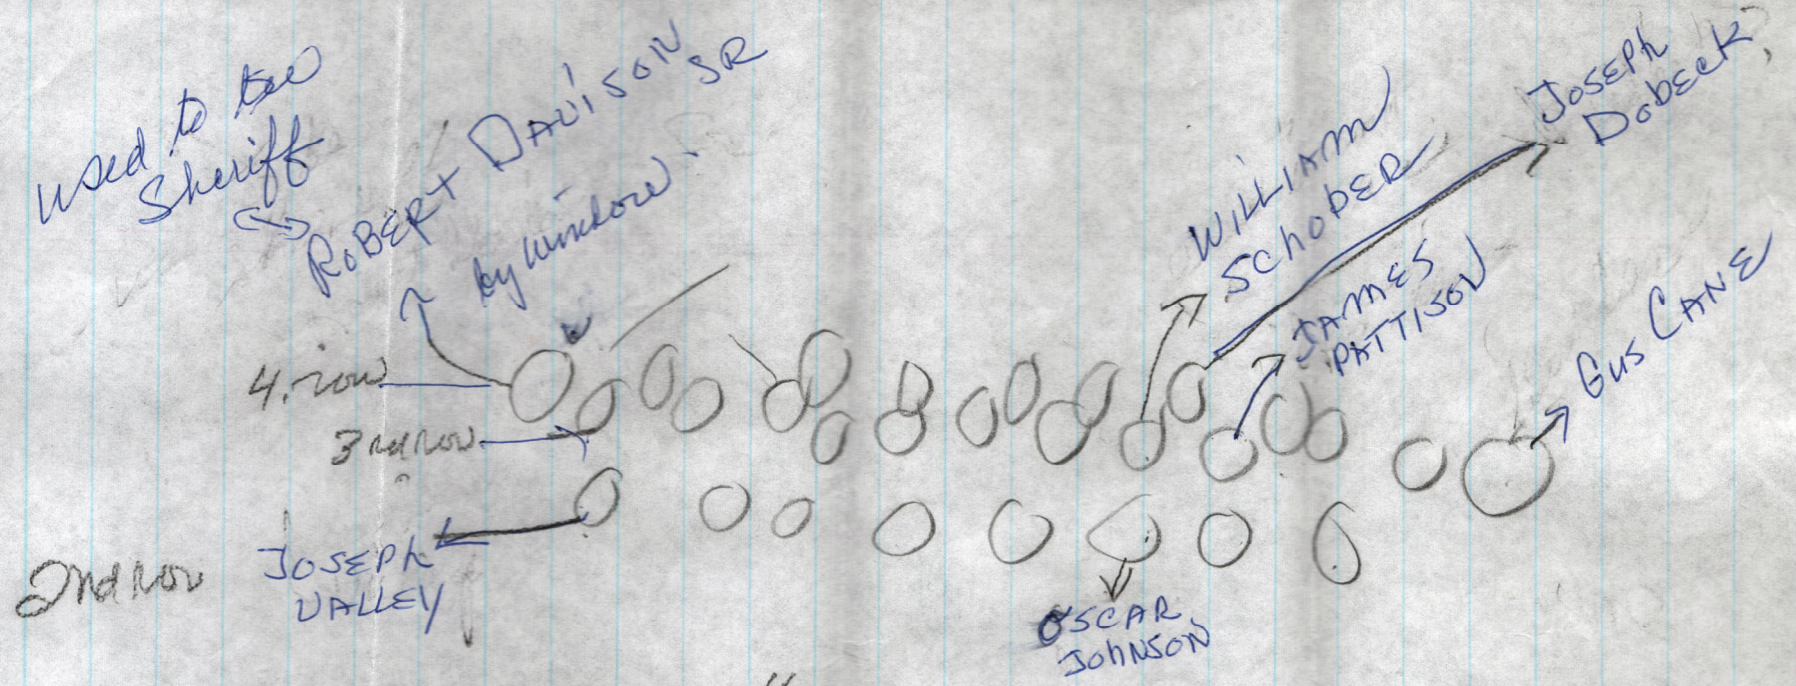 used to bee
Sheriff
ROBERT DAVISON
SR
by window
WILLIAM
SCHOBER
JOSEPh
DobECK?
JAMES
PATTISON
Gus CANE
4. row
3rd row
JOSEPh
VALLEY
2nd row
OSCAR
JOhNSON